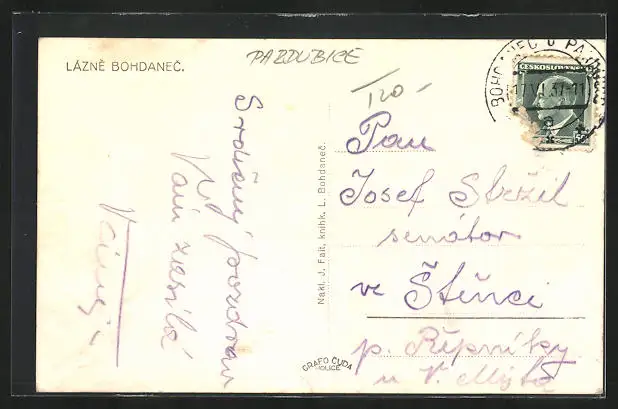 LÁZNĚ BOHDANEČ.
PARDUBICE
Srdečný pozdrav
Vám zasílá
Nakl. J. Fait, knihk. L. Bohdaneč.
GRAFO ČUDA
HOLICE
BOHDANEČ U PARDUBIC
ČESKOSLOVENSKO
50
Pan
Josef Stržil
senátor
ve Štěnci
p. Řepníky
u V. Mýta